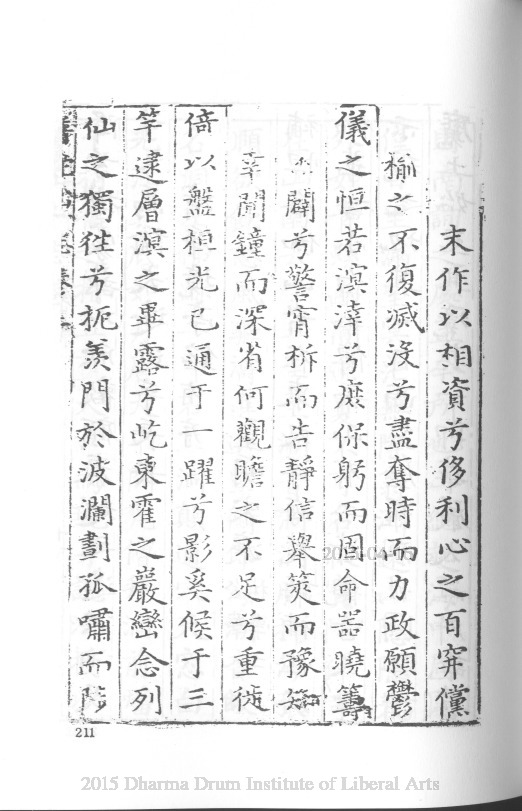 末作以相資兮侈利心之百穽儻
之不復减没兮盡奪時而力政願鬱
儀之恒若溟涬兮庶保躬而固命噐曉籌
闢兮警宵柝而告靜信舉筴而豫知
聞鐘而深省何觀瞻之不足兮重徙
倚以盤桓光已通于一躍兮影奚候于三
竿逮層溟之畢露兮屹東霍之巖巒念列
仙之獨徃兮扼羡門於波瀾劃孤嘯而
211
2015 Dharma Drum Institute of Liberal Arts